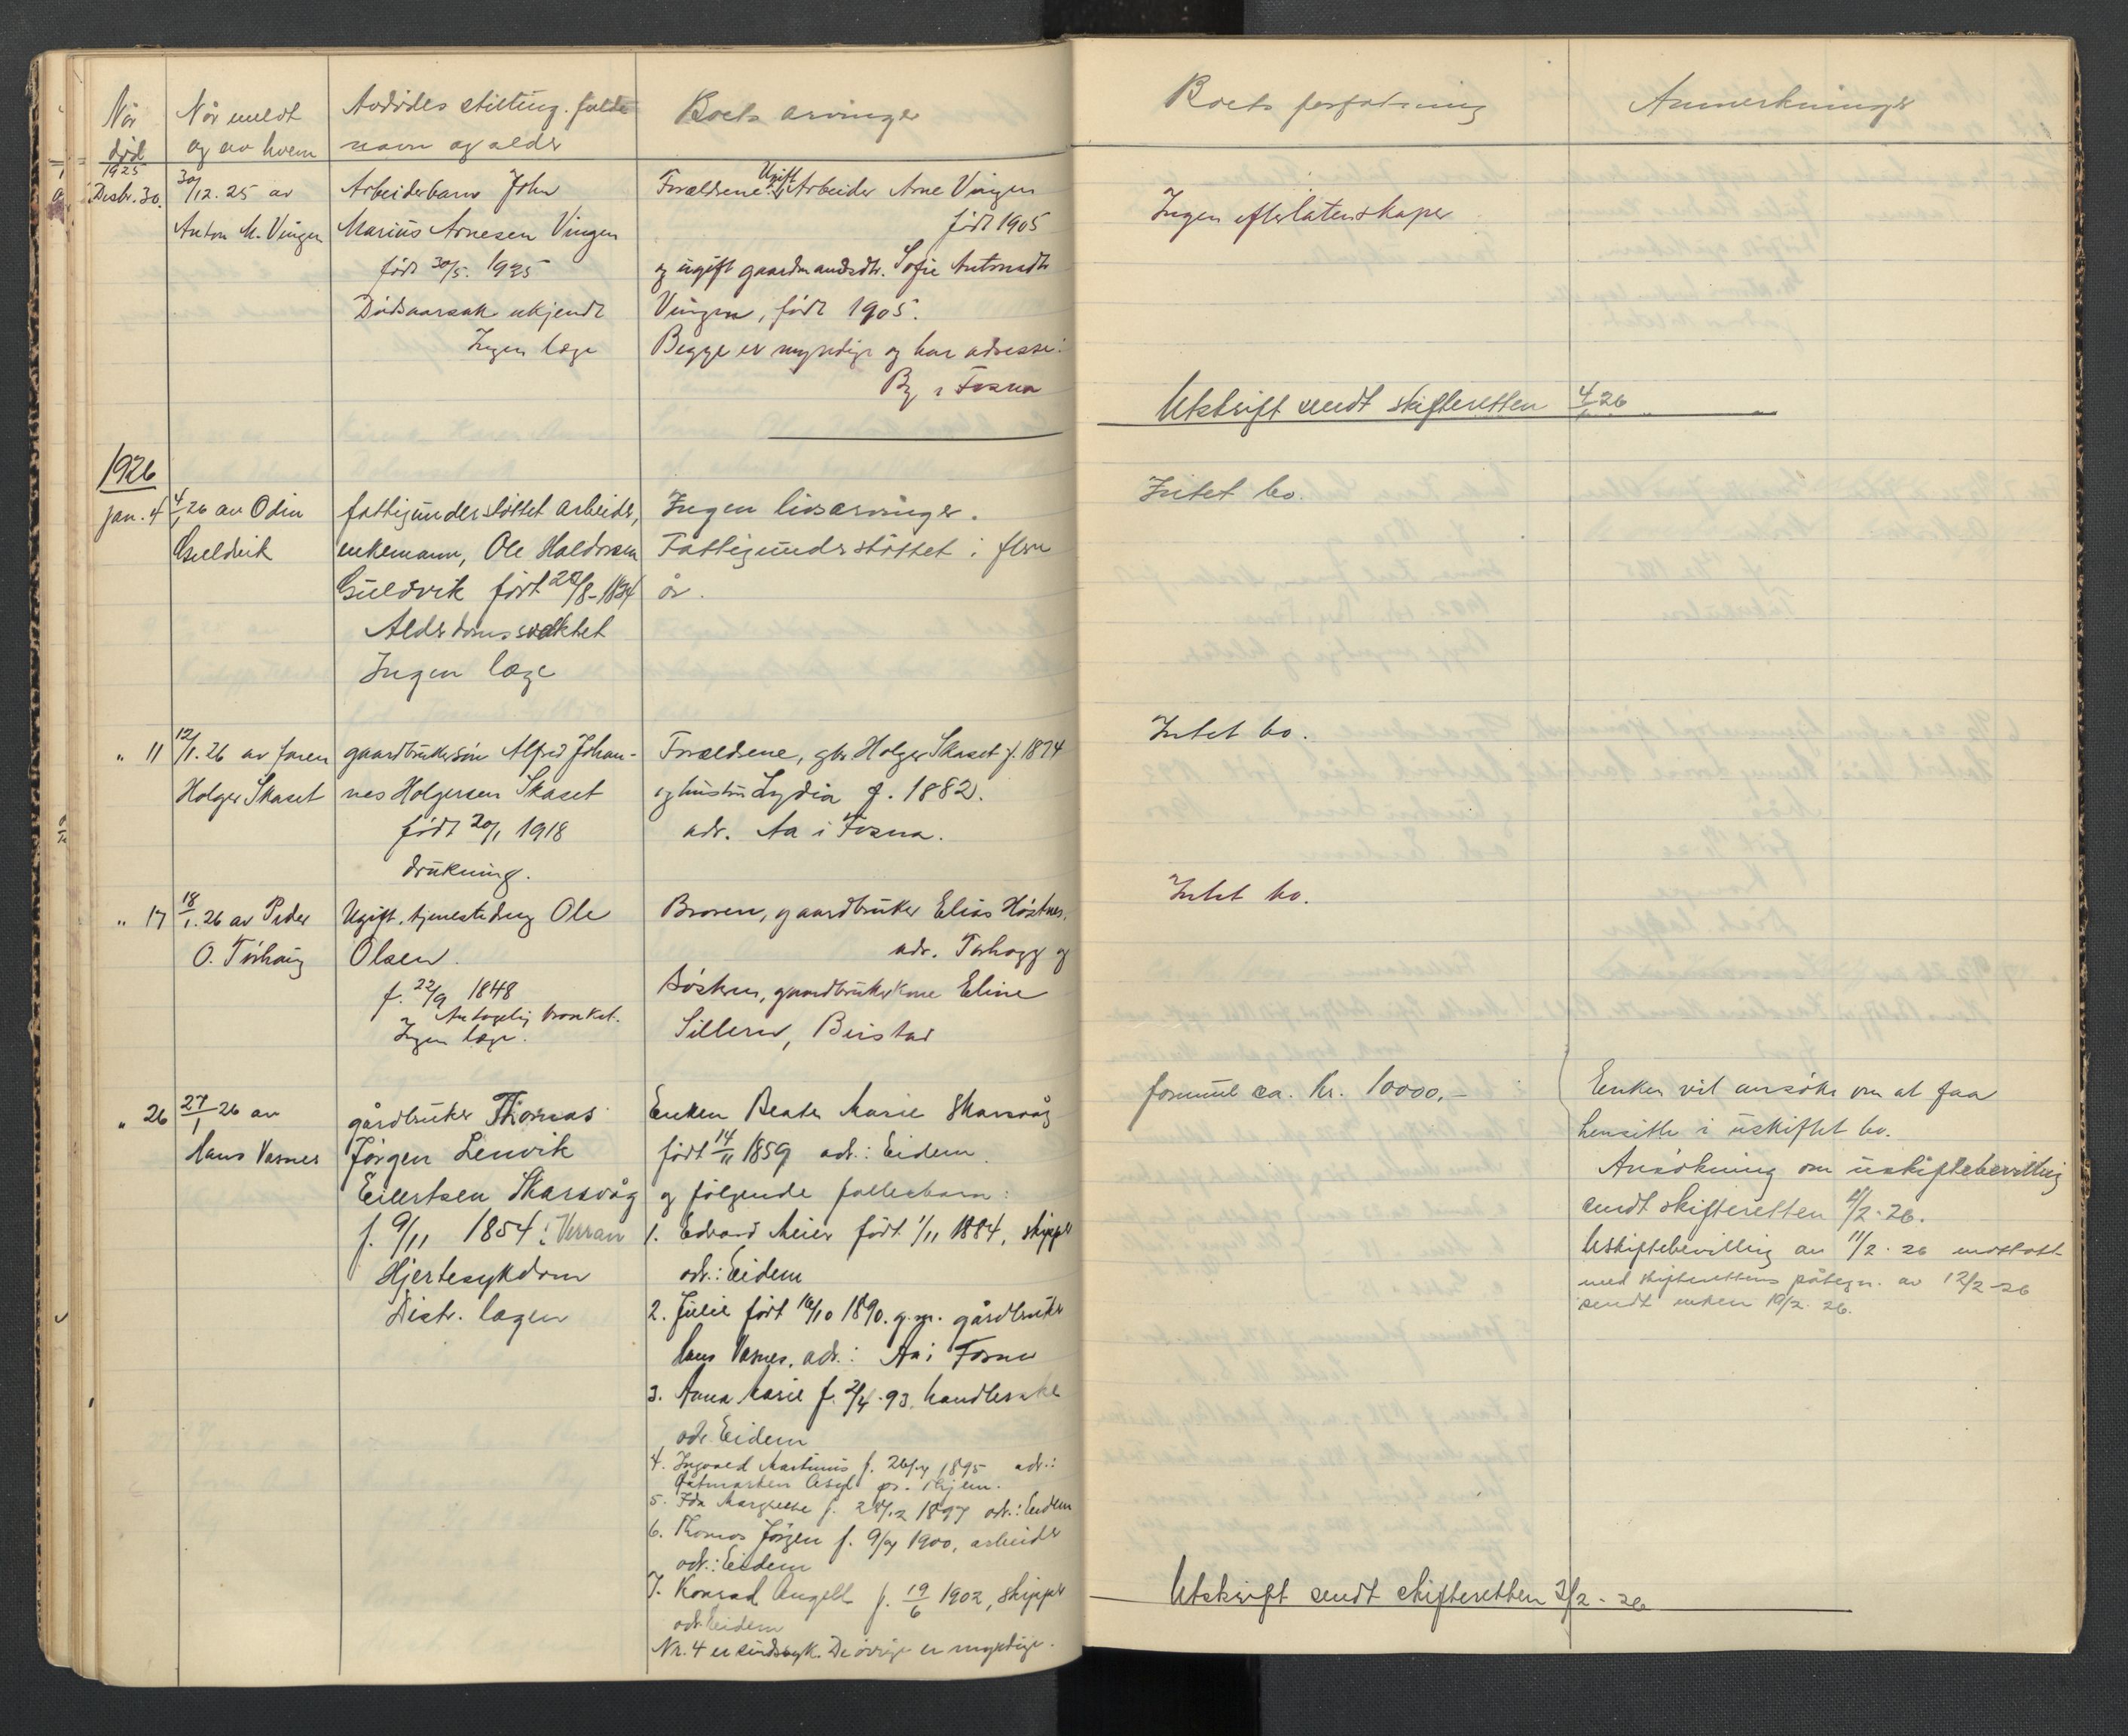 Når død
Når meldt og av hvem
Avdødes stilling. fulde navn og alder
Boets arvinger
Boets forfatning
Anmerkninger
1925
Desbr. 30.
30/12. 25 av
Anton M. Vingen
Arbeiderbarn John
Marius Arnesen Vingen
født 30/5. 1925
Dødsaarsak ukjendt
Ingen læge
Forældrene: Ugift Arbeider Arne Vingen
født 1905
og ugift gaardmandsdtr. Sofie Antonsdtr
Vingen, født 1905.
Begge er myndige og har adresse:
By i Fosna
Ingen efterlatenskaper
Utskrift sendt skifteretten 4/1 26
1926
Jan. 4
4/1 26 av Odin
Guldvik
fattigunderstøttet arbeider,
enkemann, Ole Haldorsen
Guldvik født 20/8-1834
Alderdomssvakhet
Ingen læge
Ingen livsarvinger.
Fattigunderstøttet i flere
år.
Intet bo.
" 11
12/1. 26 av faren
Holger Skaset
gaardbrukersøn Alfred Johan-
nes Holgersen Skaset
født 20/1 1918
drukning.
Forældrene, gbr Holger Skaset f. 1874
og hustru Lydia f. 1882.
adr. Aa i Fosna.
Intet bo.
" 17
18/1. 26 av Peder
O. Tørhaug
Ugift, tjenestedreng Ole
Olsen.
f. 22/9 1848
Antagelig bronkit.
Ingen læge.
Broren, gaardbruker Elias Høstnes.
adr. Torhogg og
Søsteren, gaardbrukerkone Eline
Sillerud, Beistad
Intet bo.
" 26
27/1 26 av
Hans Vasnes
gårdbruker Thomas
Jørgen Lenvik
Eilertsen Skarsvåg
f. 9/11 1854 i Verran
Hjertesykdom
Distr. lægen
Enken Beate Marie Skarsvåg
født 14/11 1859 adr.: Eidem
og følgende fellesbarn:
1. Edvard Meier født 1/11 1884, skipper
adr.: Eidem
2. Julie født 16/10 1890. g.m. gårdbruker
Hans Vasnes. adr.: Aa i Fosna
3. Anna Marie f. 2/4. 93. handlerske
adr. Eidem
4. Ingvald Martinus f. 1895 adr.:
Østmarken Asyl pr. Trhjem.
5. Ida Margrethe f. 28/12 1897 adr.: Eidem
6. Thomas Jørgen f. 1900, arbeider
adr.: Eidem
7. Konrad Angell f. 19/6 1902, skipper
adr. Eidem
Nr. 4 er sindssyk. De øvrige er myndige.
formue ca. kr. 10000.-
Enken vil ansøke om at faa
hensitte i uskiftet bo.
Ansøkning om uskiftebevilling
sendt skifteretten 4/2. 26.
Uskiftebevilling av 11/2. 26 mottatt
med skifterettens påtegn. av 12/2-26
sendt enken 19/2. 26.
Utskrift sendt skifteretten 3/2 - 26